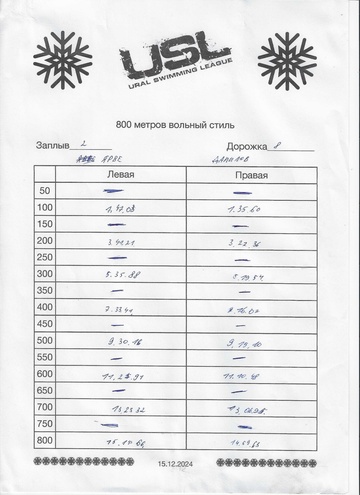 USL
URAL SWIMMING LEAGUE
800 метров вольный стиль
Заплыв 2 Дорожка 8
ЯРВЕ ДАНИЛОВ
Левая Правая
50 — —
100 1.47.08 1.35.60
150 — —
200 3.41.21 3.22.36
250 — —
300 5.35.88
350 — —
400 7.33.41
450 — —
500 9.30.16 9.19.10
550 — —
600 11.10.41
650 — —
700 13.23.32
750 — —
800
15.12.2024